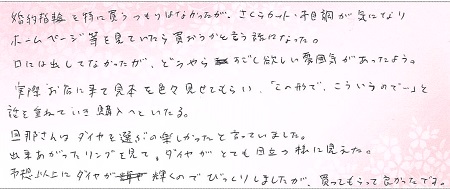 婚約指輪を特に買うつもりはなかったが、さくらカット・和色調が気になり
ホームページ等を見ていたら買おうかと言う話になった。
口には出してなかったが、どうやら すごし欲しい雰囲気があったよう。
実際お店に来て見本を色々見せてもらい、「この形で、こういうので…」と
話を重ねていき購入へといたる。
旦那さんはダイヤを選ぶの楽しかったと言っていました。
出来あがったリングを見て。ダイヤがとても目立つ様に見えた。
予想以上にダイヤが 輝くのでびっくりしましたが、買ってもらって良かったです。